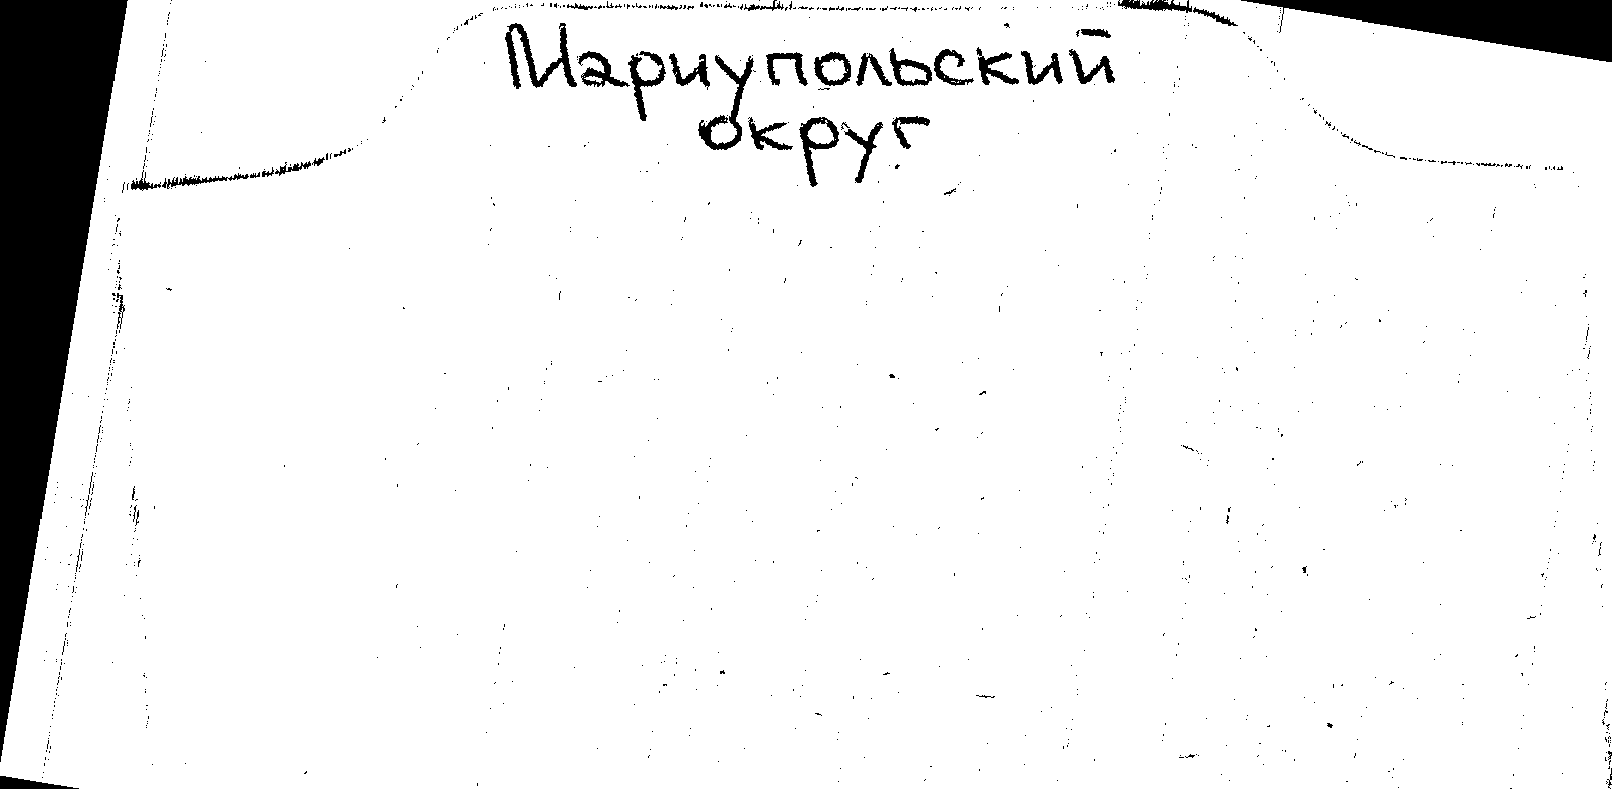 Мариупольский
округ